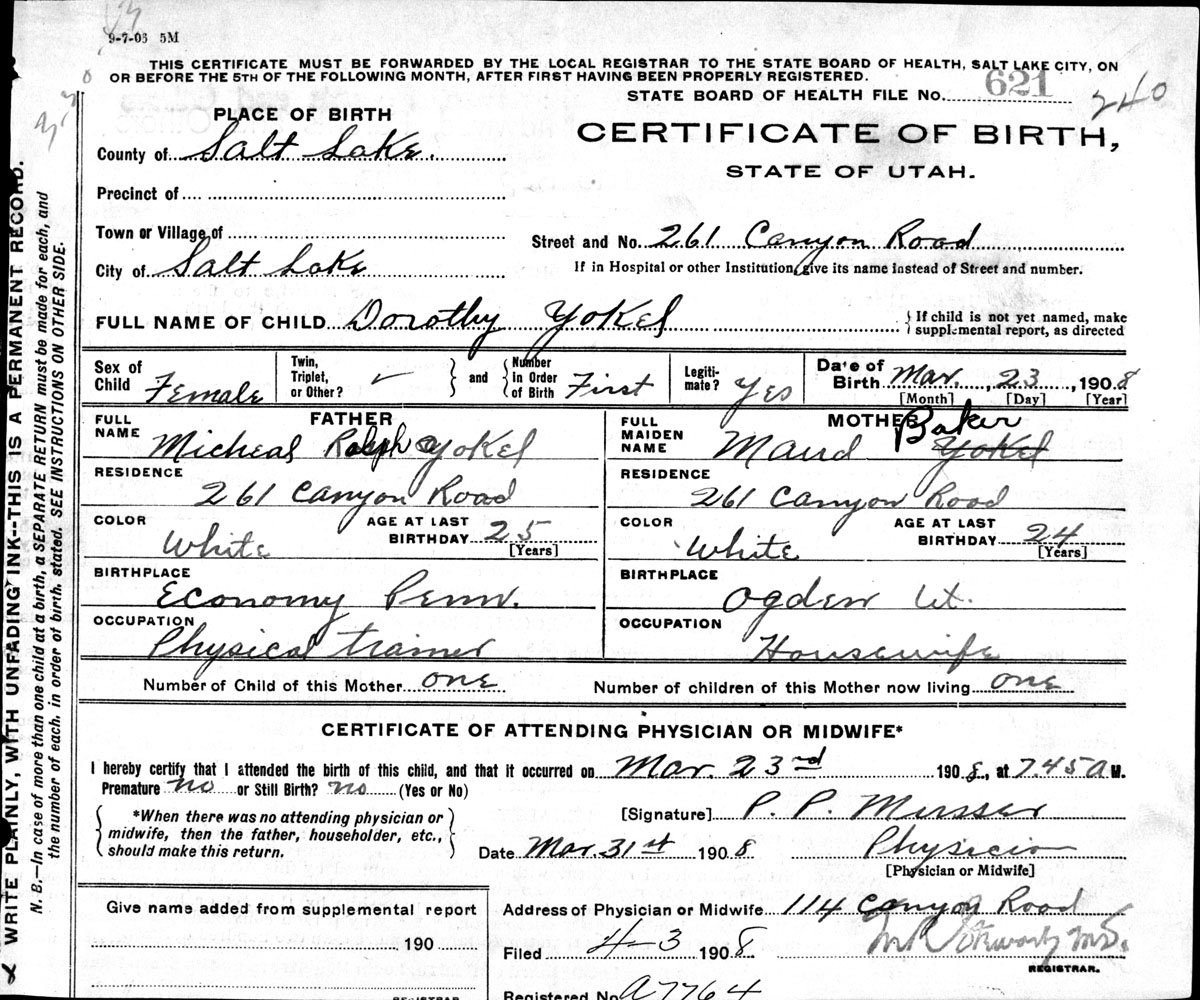 9-7-05 5M
THIS CERTIFICATE MUST BE FORWARDED BY THE LOCAL REGISTRAR TO THE STATE BOARD OF HEALTH, SALT LAKE CITY, ON
OR BEFORE THE 5TH OF THE FOLLOWING MONTH, AFTER FIRST HAVING BEEN PROPERLY REGISTERED.
STATE BOARD OF HEALTH FILE No. 621
240
PLACE OF BIRTH
CERTIFICATE OF BIRTH,
STATE OF UTAH.
County of Salt Lake.
Precinct of
Town or Village of
Street and No. 261 Canyon Road
City of Salt Lake
If in Hospital or other Institution, give its name instead of Street and number.
FULL NAME OF CHILD Dorothy Yokel
If child is not yet named, make
supplemental report, as directed
Sex of Child Female
Twin, Triplet, or Other?
and Number in Order of Birth First
Legitimate? Yes
Date of Birth Mar. , 23 , 1908
[Month] [Day] [Year]
FATHER
FULL NAME Micheal Ralph Yokel
RESIDENCE
261 Canyon Road
COLOR White AGE AT LAST BIRTHDAY 25
[Years]
BIRTHPLACE
Economy Penn.
OCCUPATION
Physical trainer
MOTHER
FULL MAIDEN NAME Maud Yokel Baker
RESIDENCE
261 Canyon Road
COLOR White AGE AT LAST BIRTHDAY 24
[Years]
BIRTHPLACE
Ogden Ut.
OCCUPATION
Housewife
Number of Child of this Mother one Number of children of this Mother now living one
CERTIFICATE OF ATTENDING PHYSICIAN OR MIDWIFE*
I hereby certify that I attended the birth of this child, and that it occurred on Mar. 23rd 1908, at 7.45 A M.
Premature no or Still Birth? no (Yes or No)
*When there was no attending physician or
midwife, then the father, householder, etc.,
should make this return.
[Signature] P. P. Musser
Date Mar. 31st 1908 Physician
[Physician or Midwife]
Give name added from supplemental report
190
REGISTRAR
Address of Physician or Midwife 114 Canyon Road
Filed 4-3 1908
REGISTRAR.
Registered No. A7764
WRITE PLAINLY, WITH UNFADING INK--THIS IS A PERMANENT RECORD.
N. B.—In case of more than one child at a birth, a SEPARATE RETURN must be made for each, and
the number of each, in order of birth, stated. SEE INSTRUCTIONS ON OTHER SIDE.